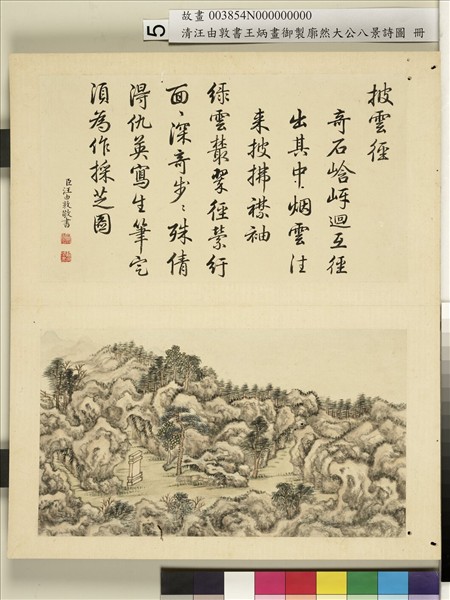 5
故畫 003854N000000000
清汪由敦書王炳畫御製廓然大公八景詩圖 冊
披雲徑
奇石峆岈迴互徑
出其中烟雲往
來披拂襟袖
綠雲叢徑縈紆
面〻深奇步〻殊倩
得仇英寫生筆定
須為作採芝圖
臣汪由敦敬書